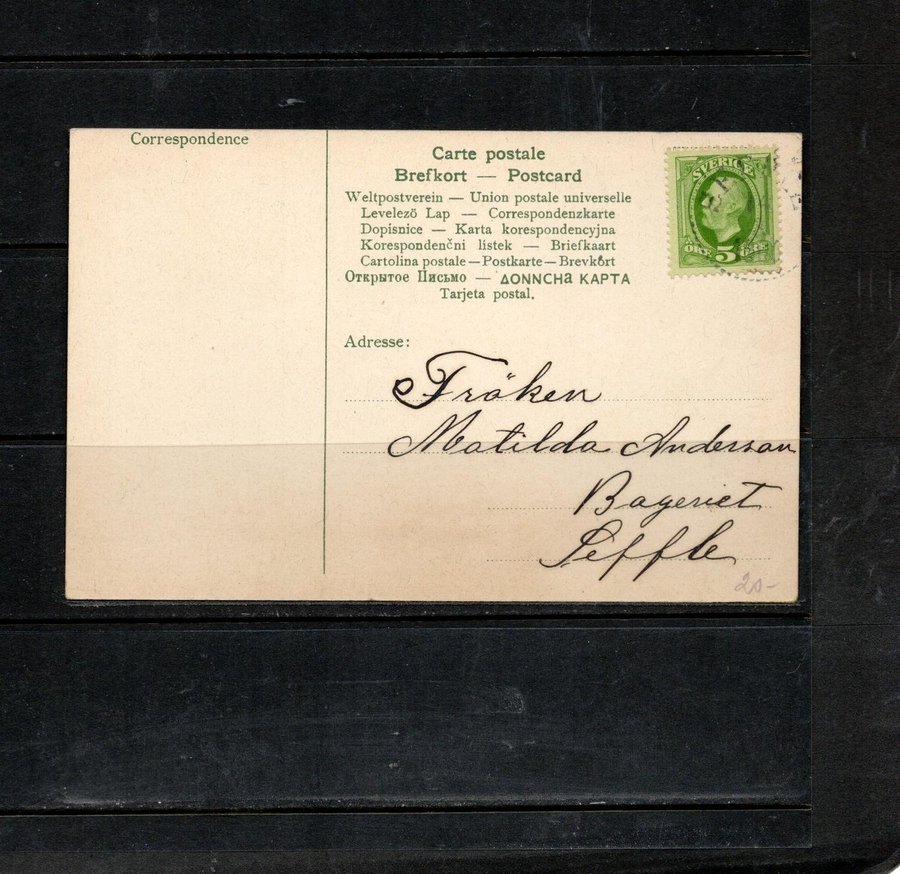 Correspondence
Carte postale
Brefkort — Postcard
Weltpostverein — Union postale universelle
Levelezõ Lap — Correspondenzkarte
Dopisnice — Karta korespondencyjna
Korespondenčni listek — Briefkaart
Cartolina postale — Postkarte — Brevkort
Открытое Письмо — ΔONNCHa KAPTA
Tarjeta postal.
SVERIGE
ÖRE 5 ÖRE
Adresse:
Fröken
Matilda Anderson
Bageriet
Seffle
20-